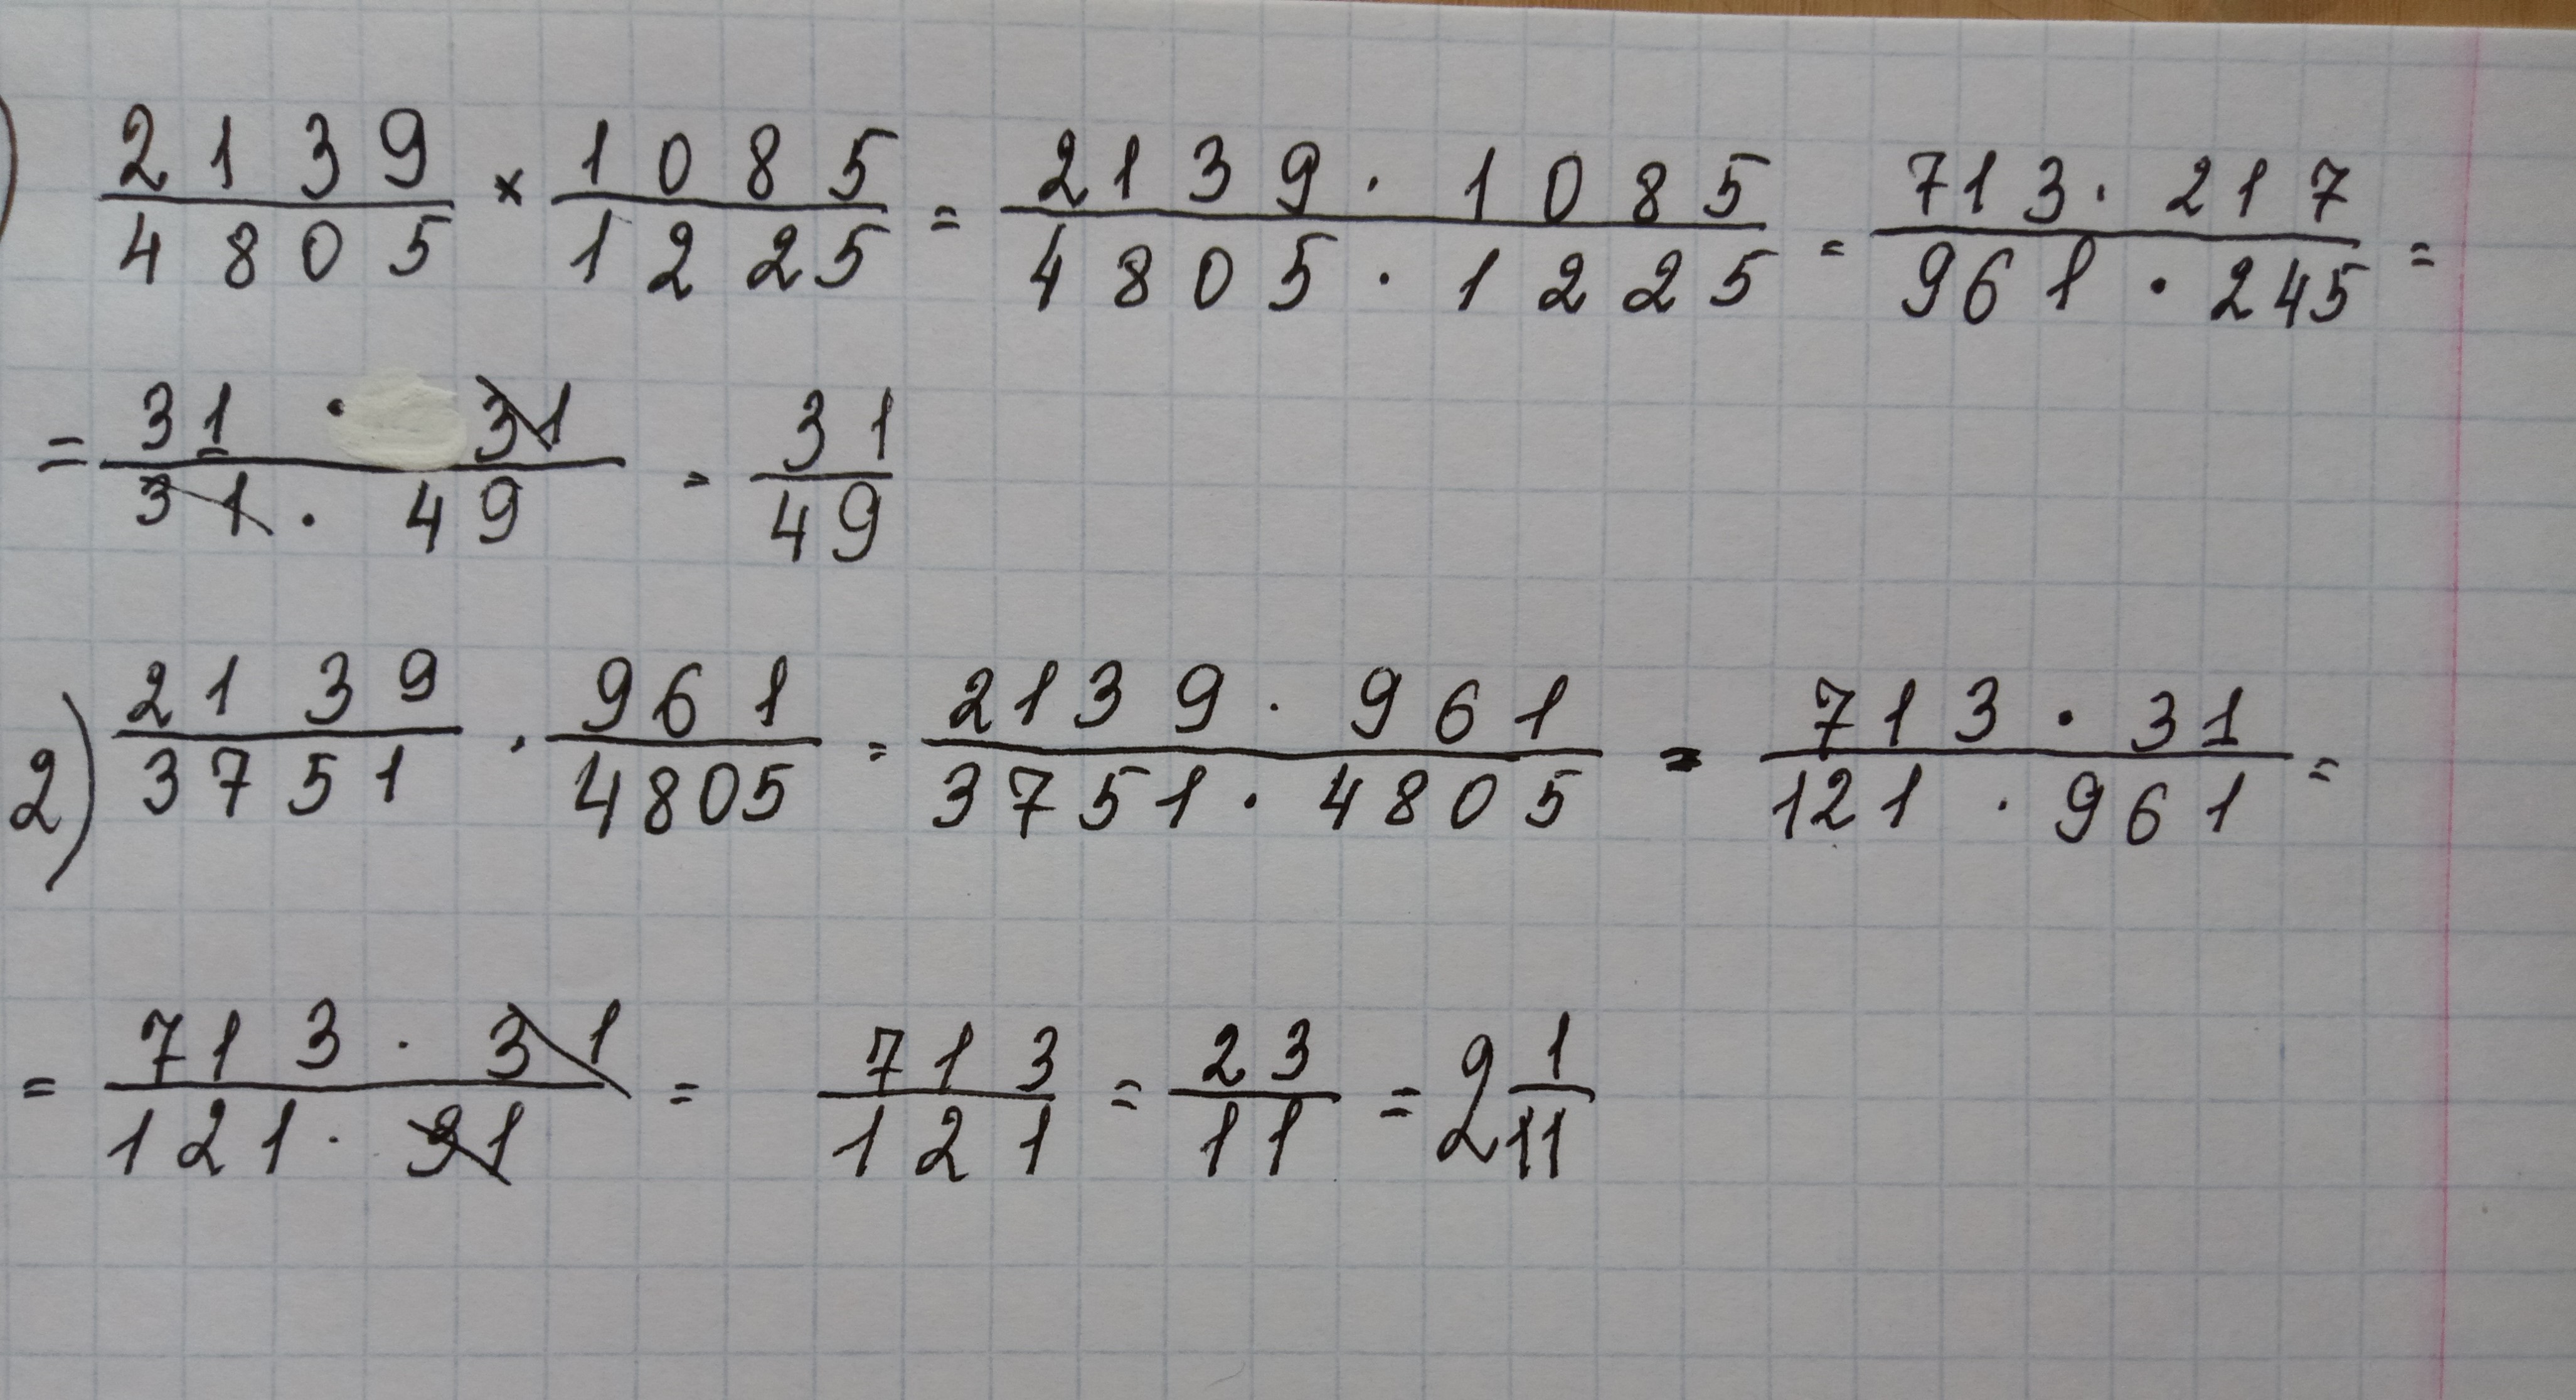 ) 2139/4805 × 1085/1225 = 2139 · 1085/4805 · 1225 = 713 · 217/961 · 245 =
= 31 · 31/31 · 49 = 31/49
2) 2139/3751 · 961/4805 = 2139 · 961/3751 · 4805 = 713 · 31/121 · 961 =
= 713 · 31/121 · 31 = 713/121 = 23/11 = 2 1/11